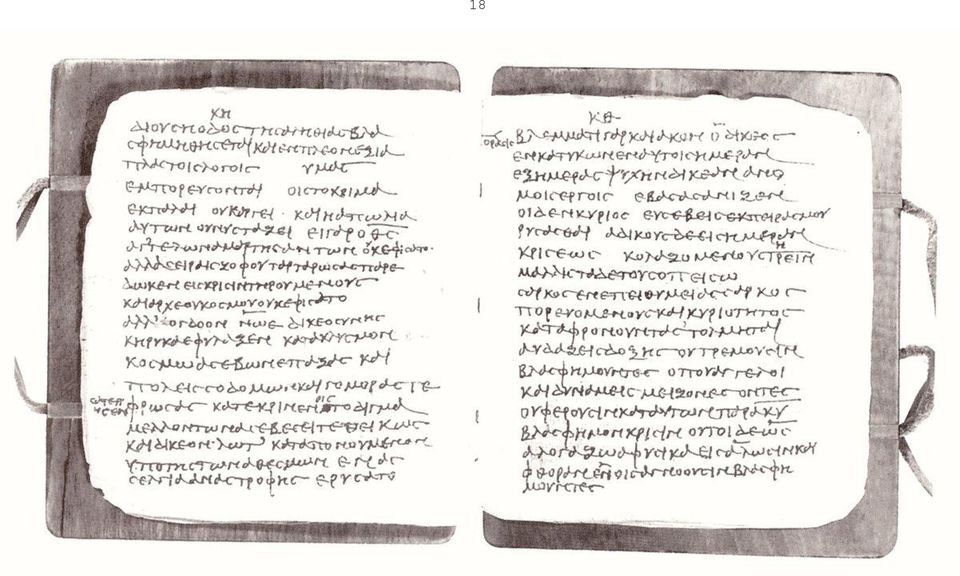 18
κη
διουσηοδοστησαληθιασβλα
σφημηθησεται καιενπλεονεξια
πλαστοισλογοις υμας
εμπορευσονται οιστοκριμα
εκπαλαι ουκαργει · καιηαπωλια
αυτων ουνυσταξει ειγαροθς
αγγελωναμαρτησαντων ουκεφισατο·
αλλασειραισζοφουταρταρωσασπαρε
δωκενεισκρισιντηρουμενους
καιαρχεουκοσμουουκεφισατο
αλλ᾽ ογδοον νωε δικεοσυνης
κηρυκαεφυλαξεν κατακλυσμον
κοσμωασεβωνεπαξας και
πολεισσοδομωνκαιγομορασ τε
φρωσας κατεκρινεν
μελλοντωνασεβεσει
καιδικεον λωτ᾽ καταπονουμενον
υποτηστωναθεσμων εν
σελγιααναστροφης ερυσατο
κθ
βλεμματιγαρκαιακοη ο δικεος
ενκατυκωνεναυτοισημεραν
εξημερας ψυχηνδικεαναν
μοισεργοις εβασανιζεν
οιδενκυριος ευσεβεισεκπειρασμου
ρυσασθαι αδικουσδεεισημεραν
κρισεως κολαζομενουστηρειν
μαλλισταδετουσοπεισω
σαρκοσενεπειθυμειασσαρκος
πορευομενουσκαικυριοτητος
καταφρονουντας τολμηται
αυθαδεισδοξης ουτρεμουσιν
βλασφημουντες οπουαγγελοι
καιδυναμεις μειζονεσοντες
ουφερουσινκαταυτωνπαρακυ
βλασφημονκρισιν ουτοιδεως
αλογαζωαφυσικαεισαλωσινκαι
φθορανενοισαγνοουσινβλασφη
μουντες